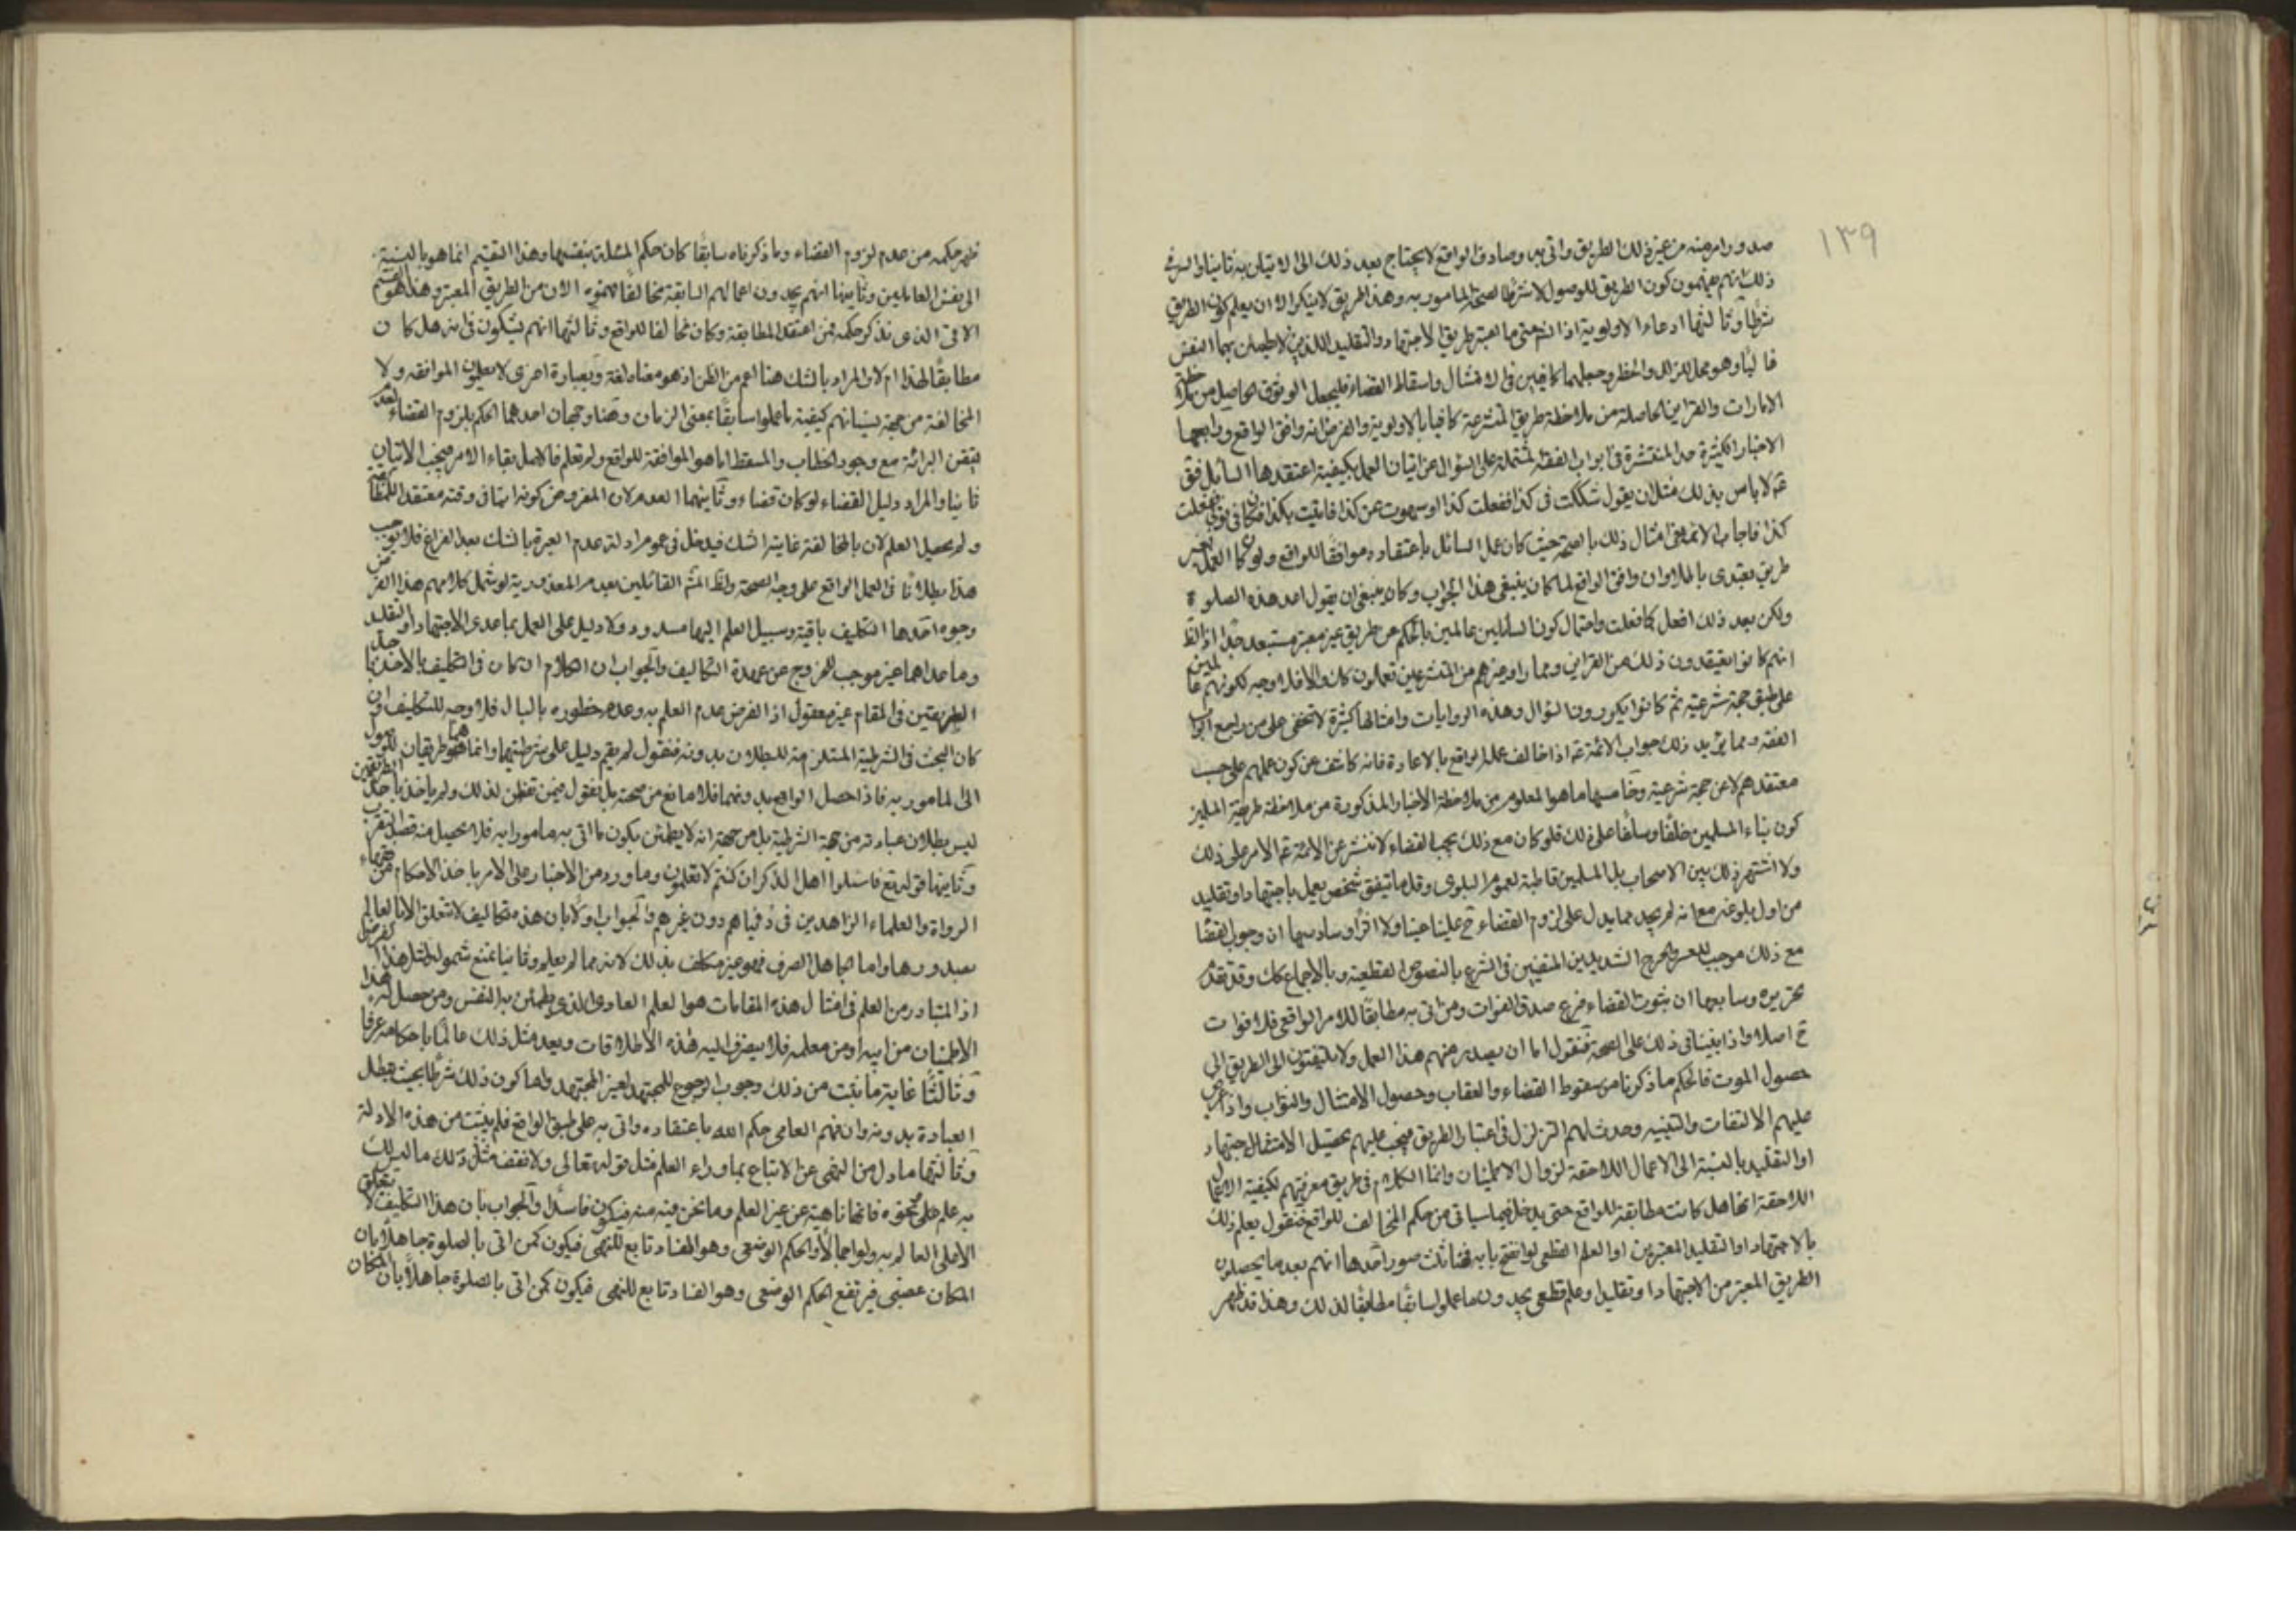 ١٣٩
صدور امر منه من غير ذلك الطريق واتى به وصادف الواقع لا يحتاج بعد ذلك الى الاتيان به ثانيا والسر في
ذلك انهم يفهمون كون الطريق للوصول لا شرطا لصحة المامور به وهذا الطريق لا ينكر الا ان يعلم كون الطريق
شرطا وثالثها ادعاء الاولوية اذا المعتبر طريق الاجتهاد والتقليد اللذين لا يطمئن بهما النفس
غالبا وهو محل للزلل والخطر وجعلهما كافيين في الامتثال واسقاط القضاء فليجعل الوثوق الحاصل من ملاحظة
الامارات والقراين الحاصلة من ملاحظة طريق المتشرعة كافيا بالاولوية والفرض انه وافق الواقع ورابعها
الاخبار الكثيرة جدا المنتشرة في ابواب الفقه المشتملة على السؤال عن اتيان العمل بكيفية اعتقدها السائل فق
ع لا باس بذلك مثل ان يقول شككت في كذا ففعلت كذا او سهوت عن كذا فاتيت بكذا في ثوبي ففعلت
كذا فاجاب الائمة في امثال ذلك بالصحة حيث كان عمل السائل باعتقاده موافقا للواقع ولو كان العمل بغير
طريق يعتدى بالملا وان وافق الواقع لما كان ينبغي هذا الجواب وكان ينبغي ان يقول اعد هذه الصلوة
ولكن بعد ذلك افعل كما فعلت واحتمال كون السائلين عالمين بالحكم عن طريق غير معتبر مستبعد جدا اذ الظ
انهم كانوا يعتقدون ذلك من القراين ومما راو غيرهم من المتشرعين تعملون كك والا فلا وجه لكونهم عالمين
على طبق حجة شرعية ثم كانوا يكررون السؤال وهذه الروايات وامثالها كثيرة لا تخفى على من راجع ابواب
الفقه ومما يؤيد ذلك جواب الائمة ع اذا خالف عمله الواقع بالاعادة فانه كاشف عن كون عملهم على حسب
معتقدهم لا عن حجة شرعية وخامسها ما هو المعلوم من ملاحظة الاخبار المذكورة من ملاحظة طريقة المسلمين
كون بناء المسلمين خلفا وسلفا على ذلك فلو كان مع ذلك يجب القضاء لانتشر عن الائمة ع الامر على ذلك
ولاشتهر ذلك بين الاصحاب بل المسلمين قاطبة لعموم البلوى وقل ما يتفق شخص يعمل باجتهاد او تقليد
من اول بلوغه مع انه لم يجد مما يدل على لزوم القضاء ح علينا عينا ولا اثرا وسادسها ان وجوب القضاء
مع ذلك موجب للعسر والحرج الشديدين المنفيين في الشرع بالنصوص القطعية وبالاجماع كك وقد تقدم
تحريره وسابعها ان ثبوت القضاء فرع صدق الفوات ومن اتى به مطابقا للامر الواقعي فلا فوات
ح اصلا واذا بنينا في ذلك على الصحة فنقول اما ان يصدر منهم هذا العمل ولا يلتفتون الى الطريق الى
حصول الموت فالحكم ما ذكرنا من سقوط القضاء والعقاب وحصول الامتثال والثواب واذا عرض
عليهم الالتفات والتنبيه وحدث لهم التزلزل في اعتبار الطريق فيجب عليهم تحصيل الامتثال اجتهاد
او التقليد بالنسبة الى الاعمال اللاحقة لزوال الاطمينان وانما الكلام في طريق معرفتهم لكيفية الاعمال
اللاحقة انها هل كانت مطابقة للواقع حتى يدخل فيما سياتي من حكم المخالف للواقع فنقول يعلم ذلك
بالاجتهاد او التقليد المعتبرين او العلم القطعي لو انفتح بابه فهنا ثلث صور احدها انهم بعد ما يحصلون
الطريق المعتبر من الاجتهاد او تقليد او علم قطعي يجدون ما عملوا سابقا مطابقا لذلك وهذا قد ظهر
ظهر حكمه من عدم لزوم القضاء وما ذكرناه سابقا كان حكم المسئلة بنفسها وهذا التقسيم انما هو بالنسبة
الى نفس العاملين وثانيها انهم يجدون اعمالهم السابقة مخالفا لما فهموه الان من الطريق المعتبر وهذا هو القسم
الاتي الذي نذكر حكمه فمن اعتقد المطابقة وكان مخالفا للواقع وثالثها انهم يشكون في انه هل كان
مطابقا لهذا ام لا والمراد بالشك هنا اعم من الظن اذ هو معناه لغة وبعبارة اخرى لا يعلمون الموافقه ولا
المخالفة من جهة نسيانهم كيفية ما عملوا سابقا بمعنى الزمان وهنا وجهان احدهما الحكم بلزوم القضاء لعدم
تيقن البرائة مع وجود الخطاب والمسقط اما هو الموافقة للواقع ولم تعلم فالاصل بقاء الامر فيجب الاتيان
ثانيا والمراد دليل القضاء لو كان قضاء وثانيهما العدم لان المفروض كونه اتيا في وقته معتقدا للمطابقة
ولم يحصيل العلم الان بالمخالفة غايته الشك فيدخل في عموم ادلة عدم العبرة بالشك بعد الفراغ فلا يوجب
هذا بطلانا في العمل الواقع على وجه الصحة والظ القائلين بعدم المعذورية لو شمل كلامهم هذا الفرض
وجوه احدها التكليف باقية وسبيل العلم اليها مسدود ولا دليل على العمل بما عدى الاجتهاد او التقليد
وما عداهما غير موجب للخروج عن عهدة التكاليف والجواب ان الكلام ان كان في التكليف بالاخذ باحد
الطريقتين في المقام غير معقول اذ الفرض عدم العلم به وعدم خطوره بالبال فلا وجه للتكليف وان
كان البحث في الشرطية المستلزمة للبطلان بدونه فنقول لم يقم دليل على شرطيتهما وانما هما طريقان للوصول
الى المامور به فاذا حصل الواقع بدونهما فلا مانع من صحته بل نقول فيمن تفطن لذلك ولم ياخذ باحد الطريقين
ليس بطلان عبادته من جهة الشرطية بل من جهة انه لا يطمئن بكون ما اتى به مامورا به فلا يحصيل منه قصد التقرب
وثانيها قوله تع فاسئلوا اهل الذكر ان كنتم لا تعلمون وما ورد من الاخبار على الامر باخذ الاحكام من
الرواة والعلماء الزاهدين في دنياهم دون غيرهم والجواب اولا بان هذه تكاليف لا تتعلق الا بالعالم
بصدورها واما الجاهل الصرف فهو غير مكلف بذلك لانه مما لم يعلم وثانيا نمنع شموله لمثل هذا الفرض
اذ المتبادر من العلم في امثال هذه المقامات هو العلم العادي الذي يطمئن به النفس ومن حصل له هذا
الاطمينان من ابيه او من معلمه فلا ينصرف اليه هذه الاطلاقات ويعد مثل ذلك عالما باحكامه عرفا
وثالثا غاية ما ثبت من ذلك وجوب الرجوع للمجتهد لغير المجتهد واما كون ذلك شرطا بحيث يبطل
العبادة بدونه وان فهم العامي حكم الله باعتقاده واتى به على طبق الواقع فلم يثبت من هذه الادلة
وثالثها ما دل من النهي عن الاتباع بما وراء العلم مثل قوله تعالى ولا تقف مثل ذلك ما ليس لك
به علم على نحوه فانها ناهية عن غير العلم وما نحن فيه منه فيكون فاسدا والجواب بان هذا التكليف لا يتعلق
الا على العالم به ولو اجمالا والحكم الوضعي وهو الفساد تابع للنهي فيكون كمن اتى بالصلوة جاهلا بان
المكان غصبي فيرتفع الحكم الوضعي وهو الفساد تابع للنهي فيكون كمن اتى بالصلوة جاهلا بان المكان